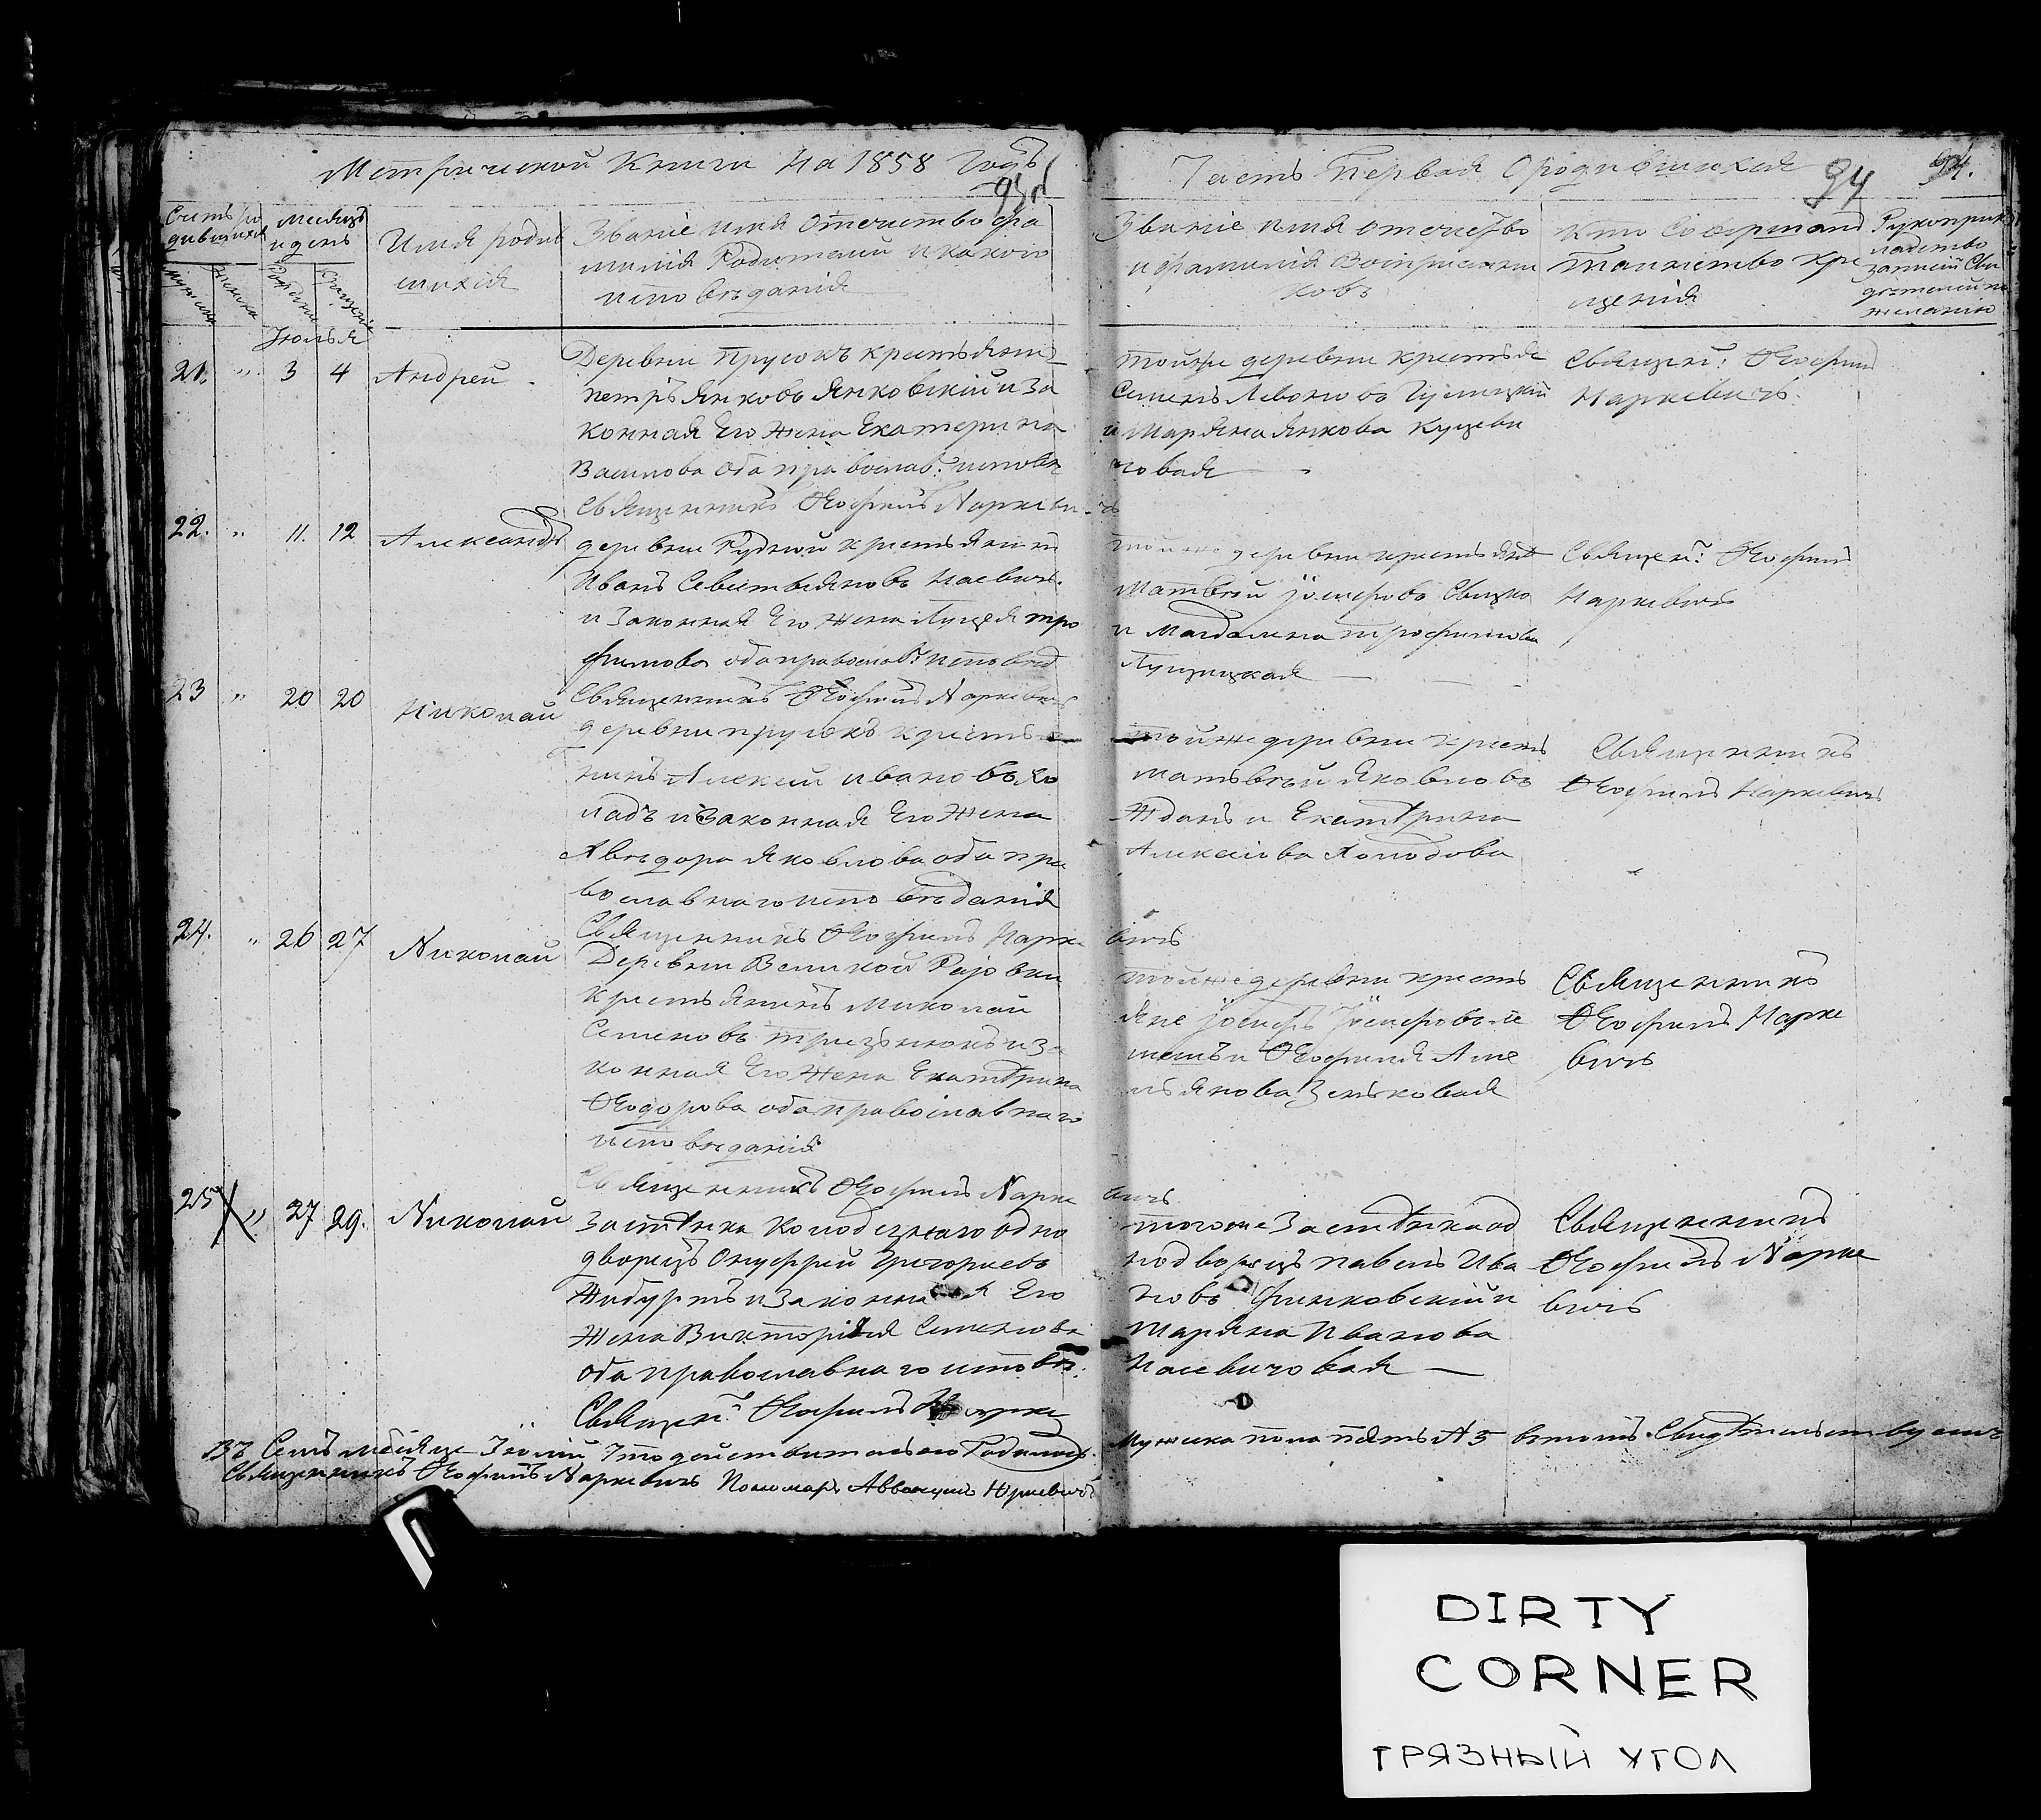 Метрической Книги на 1858 Годъ
Часть Первая О родившихся 94
Счетъ ро
дившихся
Мужеска
Женска
Месяцъ
и день
Рожденія
Крещенія
Имя родив
шихся
Званіе имя отечество фа
милія Родителей и какого
исповѣданія
Званіе имя отечество
и фамилія Воспріемни
ковъ
Кто Совершалъ
таинство Кре
щенія
Рукоприк
ладство
записей Сви
дѣтелей по
желанію
Іюль
21. " 3 4 Андрей
Деревни Прусокъ крестьянинъ
Петръ Янковъ Янковскій и за
конная Его Жена Екатерина
оба православ: исповѣ
Священникъ Ѳеофилъ Наркеви
чъ
тойже деревни крестьяне
Семенъ
и Маряна Янкова Куцеви
човая
Священ: Ѳеофилъ
Наркевичъ
22. " 11. 12 Александръ
деревни Рудной крестьянинъ
Иванъ Севастьяновъ Насевичъ
и Законная Его Жена Луцея Тро
фимова оба православ: исповѣд
Священникъ Ѳеофилъ Наркевичъ
тойже деревни крестьяне
Матвей Іосифовъ
и Магдалена Трофимова
Священ: Ѳеофилъ
Наркевичъ
23 " 20 20 Николай
деревни прусокъ крестья
нинъ Алексей Ивановъ Хо
ладъ и Законная Его Жена
Авъдоря Яковлова оба пра
вославнаго исповѣданія
Священникъ Ѳеофилъ Нарке
вичъ
тойже деревни крестья
матвѣй Яковловъ
Жданъ и Екатѣрина
Алексѣева Холодова
Священникъ
Ѳеофилъ Наркевичъ
24. " 26 27 Николай
Деревни Великой Раіовки
Крестьянинъ Миколай
Семеновъ и за
конная Его Жена Екатѣрина
Ѳеодорова оба православнаго
исповѣданія
Священникъ Ѳеофилъ Нарке
вичъ
тойже деревни кресть
яне Іосифъ Іосифовъ
и Ѳеофилія Аме
льянова Зеньковая
Священникъ
Ѳеофилъ Нарке
вичъ
25 " 27 29. Николай
Застѣнка Колодезнаго одно
дворецъ Онуфрей Григорьевъ
и Законная Его
Жена Викторія Семенова
оба православнаго исповѣ:
Священ: Ѳеофилъ Нарке
вичъ
тогоже Застѣнка од
нодворецъ павелъ Ива
новъ и
Маряна Иванова
Насевичовая
Священникъ
Ѳеофилъ Нарке
вичъ
Въ Семъ месяце Іюлій что действительно Родилось
мужска пола пять № 5 въ томъ Свидѣтельствуемъ
Священникъ Ѳеофилъ Наркевичъ Пономарь Аввакумъ Юркевичъ
DIRTY
CORNER
ГРЯЗНЫЙ УГОЛ